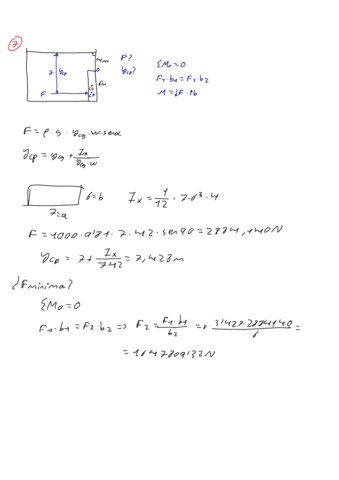 7
4m
F?
ycp?
ΣMo=0
F1·b1=F2·b2
M=∫F·db
7
ycp
O
6m
F
F = ρ·g·ycg·w·senα
ycp = ycg + Ix/ycg·w
6=b
7=a
Ix = 1/12 · 7·6³·4
F = 1000·9,81·7·42·sen90 = 2884,140N
ycp = 7 + Ix/7·42 = 7,428m
¿Fminima?
ΣMo=0
F1·b1=F2·b2 => F2 = F1·b1/b2 => 3,1428·2884140/6 =
= 1647809,132N